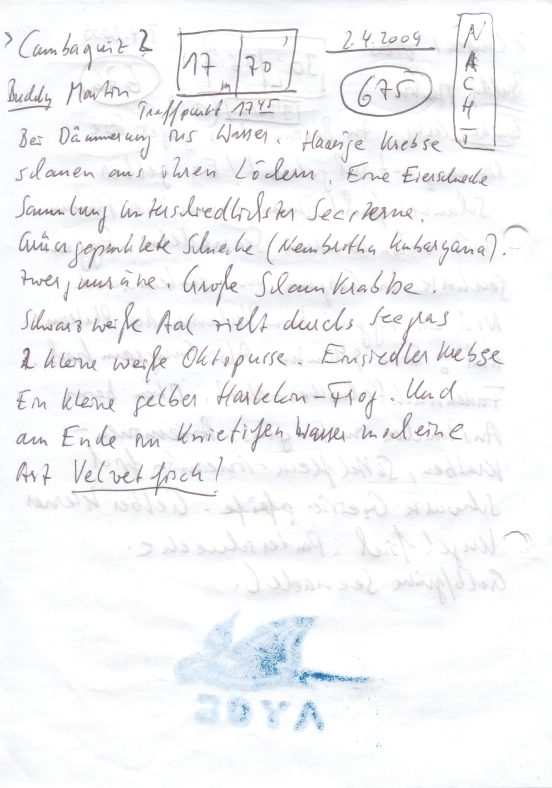 > Cambaquiz 2
17 m 70'
2.4.2009
NACHT
Buddy Martin
675
Treffpunkt 17 45
Bei Dämmerung ins Wasser. Haarige Krebse
schauen aus ihren Löchern. Eine Eierschecke
Sammlung unterschiedlichster Seesterne.
Grün gepunktete Schnecke (Nembrotha Kubaryana).
Zwergmuräne. Große Schamkrabbe.
Schwarz weiße Aal zieht durchs Seegras
2 kleine weiße Oktopusse. Einsiedlerkrebse
Ein kleine gelber Harlekin-Frog. Und
am Ende im Knietiefen Wasser noch eine
Art Velvetfisch!